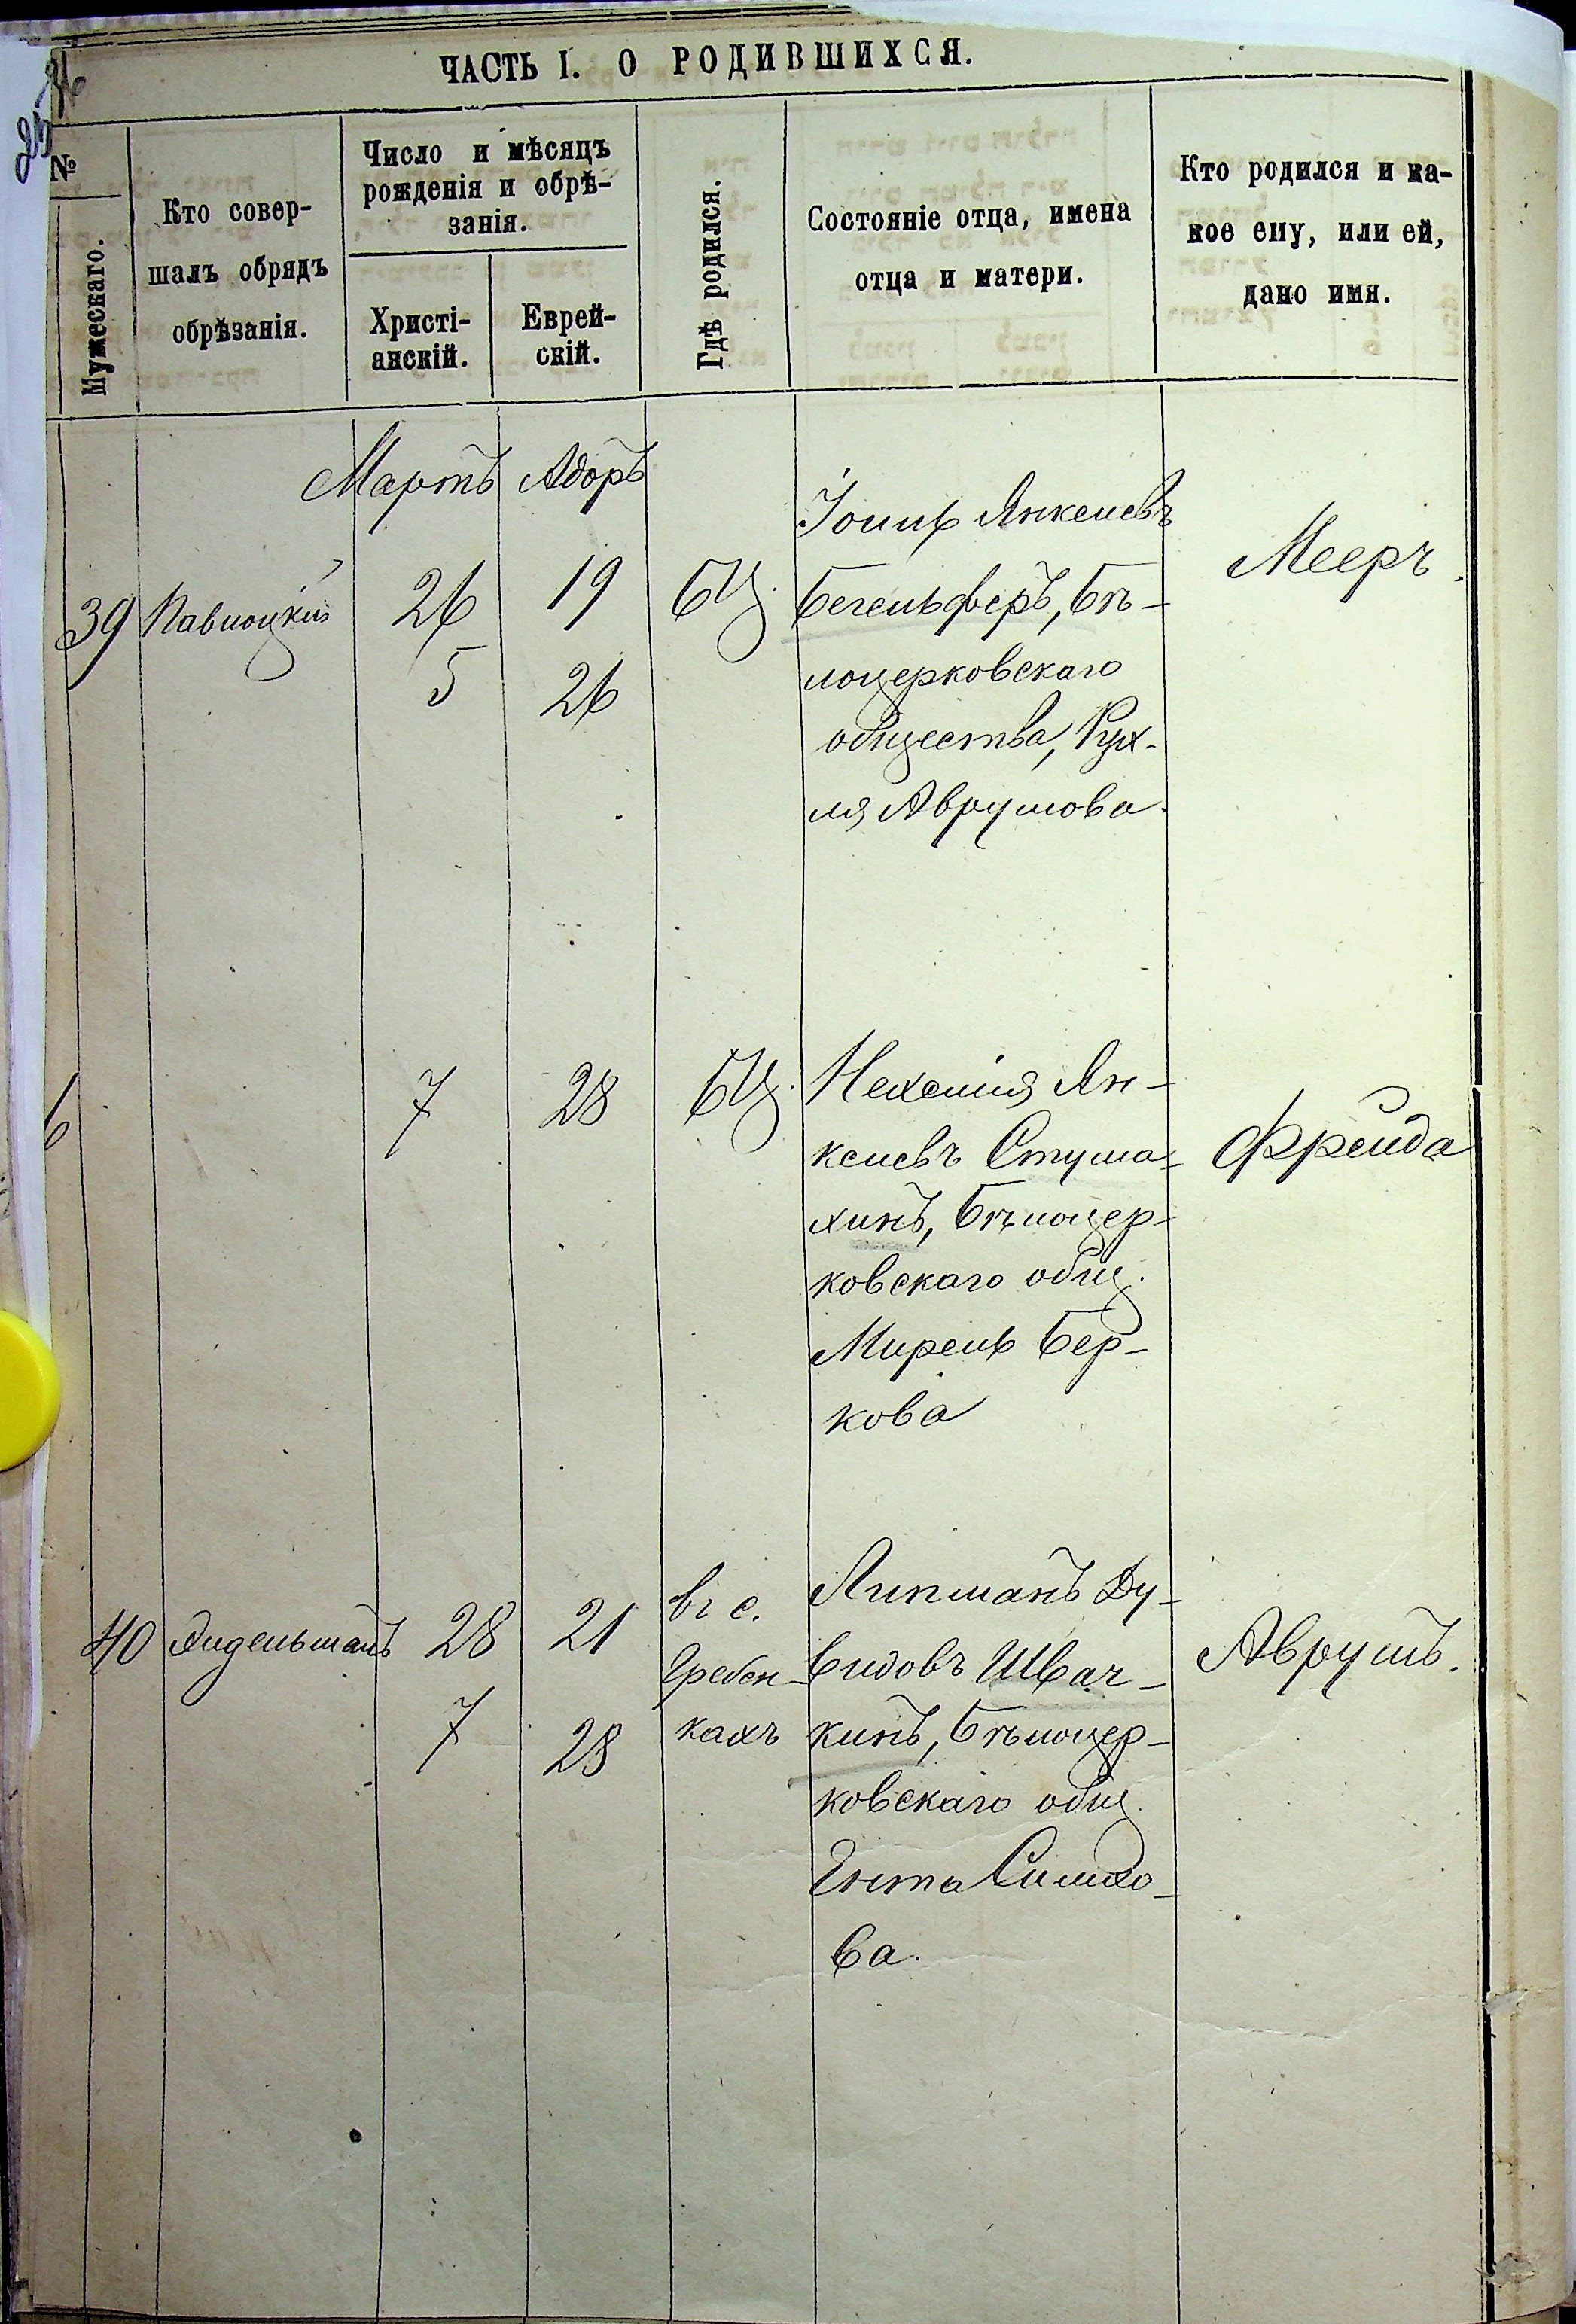 ЧАСТЬ I. О РОДИВШИХСЯ.
№
Мужескаго.
Кто совер-
шалъ обрядъ
обрѣзанія.
Число и мѣсяцъ
рожденія и обрѣ-
занія.
Христі-
анскій.
Еврей-
скій.
Гдѣ родился.
Состояніе отца, имена
отца и матери.
Кто родился и ка-
кое ему, или ей,
дано имя.
Мартъ Адоръ
39 Павлоцкій 26 19 БЦ.
5 26
Іоиль Янкелевъ
Бегельферъ, Бѣ-
лоцерковскаго
общества, Рух-
ля Аврумова.
Мееръ.
7 28 БЦ.
Нехемія Ян-
келевъ Стума-
хинъ, Бѣлоцер-
ковскаго общ.
Мирель Бер-
кова
Фрейда
40 Эйдельманъ 28 21
7 28
въ с.
Гребен-
кахъ
Липманъ Ду-
видовъ Швач-
кинъ, Бѣлоцер-
ковскаго общ.
Ента Симхо-
ва.
Аврумъ.